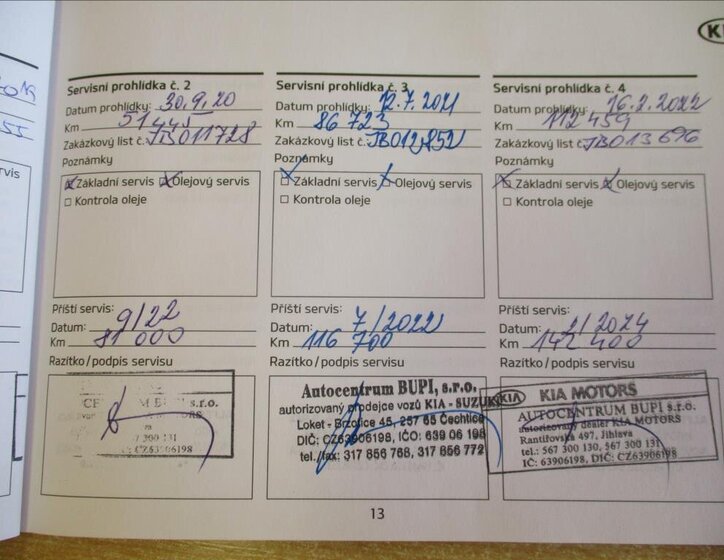 Servisní prohlídka č. 2
Datum prohlídky: 30.9.20
Km 51445
Zakázkový list č. JB011728
Poznámky
Základní servis Olejový servis
Kontrola oleje
Příští servis:
Datum: 9/22
Km 81 000
Razítko/podpis servisu
M BUPI, s.r.o.
MOTORS
67 300 131
CZ63906198
Servisní prohlídka č. 3
Datum prohlídky: 12.7.2021
Km 86 723
Zakázkový list č. JB012852
Poznámky
Základní servis Olejový servis
Kontrola oleje
Příští servis:
Datum: 7/2022
Km 116 700
Razítko/podpis servisu
Autocentrum BUPI, s.r.o.
autorizovaný prodejce vozů KIA - SUZUKI
Loket - Brzotice 45, 257 65 Čechtice
DIČ: CZ63906198, IČO: 639 06 198
tel./fax: 317 856 768, 317 856 772
Servisní prohlídka č. 4
Datum prohlídky: 16.2.2022
Km 112 459
Zakázkový list č. JB013696
Poznámky
Základní servis Olejový servis
Kontrola oleje
Příští servis:
Datum: 2/2024
Km 142 400
Razítko/podpis servisu
KIA KIA MOTORS
AUTOCENTRUM BUPI s.r.o.
autorizovaný dealer KIA MOTORS
Rantířovská 497, Jihlava
tel.: 567 300 130, 567 300 131
IČ: 63906198, DIČ: CZ63906198
13